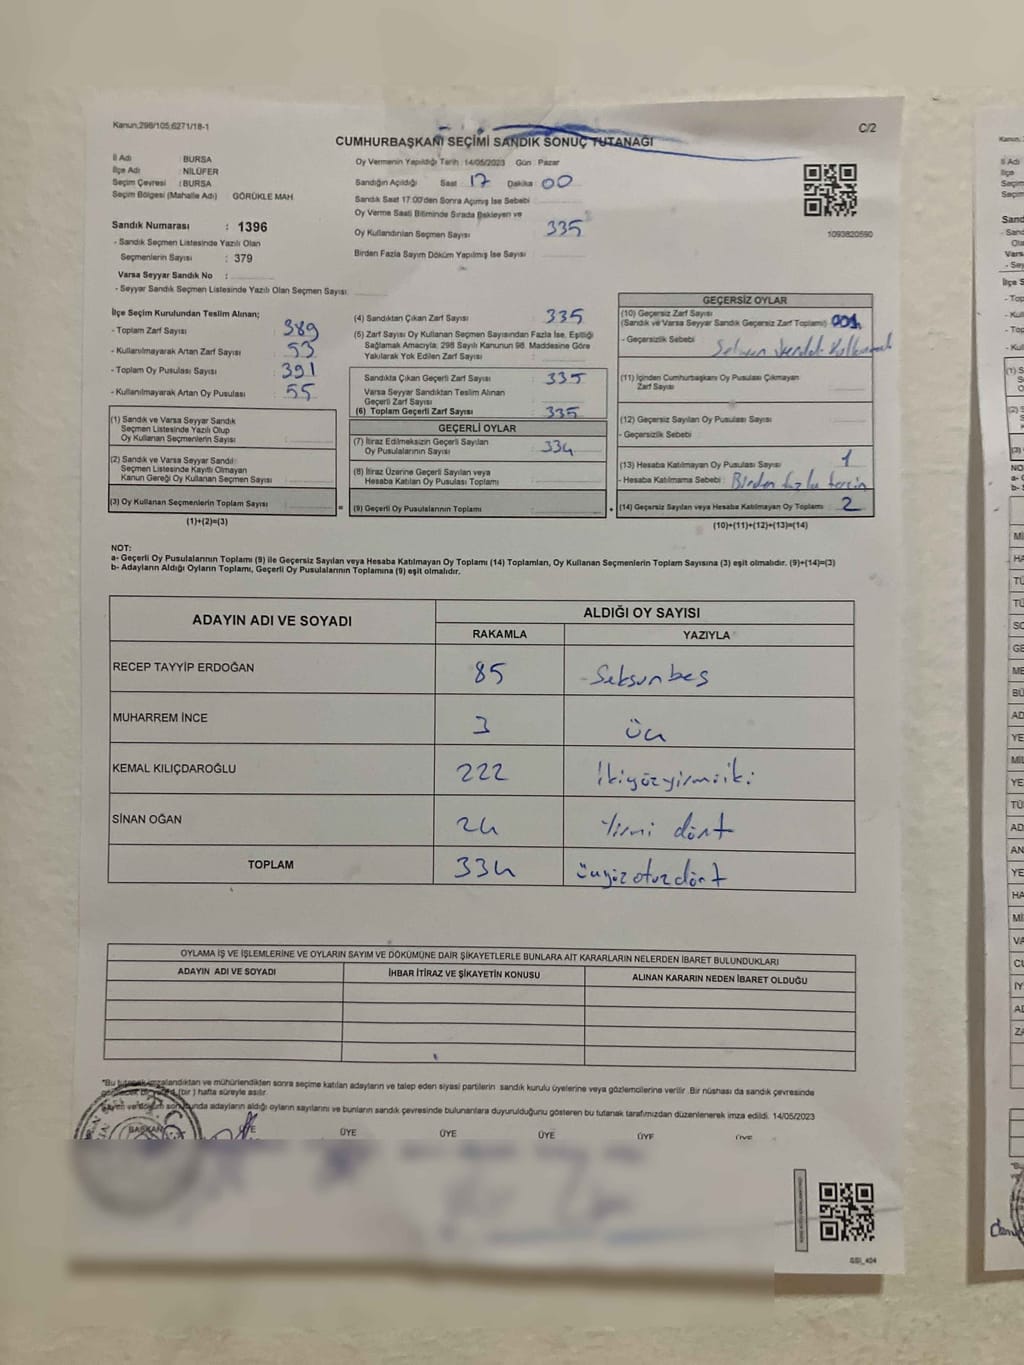 Kanun:298/105;6271/18-1
C/2
CUMHURBAŞKANI SEÇİMİ SANDIK SONUÇ TUTANAĞI
İl Adı : BURSA
İlçe Adı : NİLÜFER
Seçim Çevresi : BURSA
Seçim Bölgesi (Mahalle Adı) GÖRÜKLE MAH.
Oy Vermenin Yapıldığı Tarih :14/05/2023 Gün : Pazar
Sandığın Açıldığı Saat : 17 Dakika : 00
Sandık Saat 17:00'den Sonra Açılmış İse Sebebi
Oy Verme Saati Bitiminde Sırada Bekleyen ve
Oy Kullandırılan Seçmen Sayısı 335
Birden Fazla Sayım Döküm Yapılmış İse Sayısı :
1093820590
Sandık Numarası : 1396
- Sandık Seçmen Listesinde Yazılı Olan
Seçmenlerin Sayısı : 379
Varsa Seyyar Sandık No :
- Seyyar Sandık Seçmen Listesinde Yazılı Olan Seçmen Sayısı:
İlçe Seçim Kurulundan Teslim Alınan;
- Toplam Zarf Sayısı : 389
- Kullanılmayarak Artan Zarf Sayısı : 53
- Toplam Oy Pusulası Sayısı : 391
- Kullanılmayarak Artan Oy Pusulası : 55
(1) Sandık ve Varsa Seyyar Sandık
Seçmen Listesinde Yazılı Olup
Oy Kullanan Seçmenlerin Sayısı :
(2) Sandık ve Varsa Seyyar Sandık
Seçmen Listesinde Kayıtlı Olmayan
Kanun Gereği Oy Kullanan Seçmen Sayısı :
(3) Oy Kullanan Seçmenlerin Toplam Sayısı :
(1)+(2)=(3)
(4) Sandıktan Çıkan Zarf Sayısı : 335
(5) Zarf Sayısı Oy Kullanan Seçmen Sayısından Fazla İse, Eşitliği
Sağlamak Amacıyla; 298 Sayılı Kanunun 98. Maddesine Göre
Yakılarak Yok Edilen Zarf Sayısı :
Sandıkta Çıkan Geçerli Zarf Sayısı : 335
Varsa Seyyar Sandıktan Teslim Alınan
Geçerli Zarf Sayısı :
(6) Toplam Geçerli Zarf Sayısı : 335
GEÇERLİ OYLAR
(7) İtiraz Edilmeksizin Geçerli Sayılan
Oy Pusulalarının Sayısı : 334
(8) İtiraz Üzerine Geçerli Sayılan veya
Hesaba Katılan Oy Pusulası Toplamı :
(9) Geçerli Oy Pusulalarının Toplamı :
GEÇERSİZ OYLAR
(10) Geçersiz Zarf Sayısı
(Sandık ve Varsa Seyyar Sandık Geçersiz Zarf Toplamı)
- Geçersizlik Sebebi :
(11) İçinden Cumhurbaşkanı Oy Pusulası Çıkmayan
Zarf Sayısı :
(12) Geçersiz Sayılan Oy Pusulası Sayısı :
- Geçersizlik Sebebi :
(13) Hesaba Katılmayan Oy Pusulası Sayısı : 1
- Hesaba Katılmama Sebebi : Birden fazla tercih
(14) Geçersiz Sayılan veya Hesaba Katılmayan Oy Toplamı : 2
(10)+(11)+(12)+(13)=(14)
NOT:
a- Geçerli Oy Pusulalarının Toplamı (9) ile Geçersiz Sayılan veya Hesaba Katılmayan Oy Toplamı (14) Toplamları, Oy Kullanan Seçmenlerin Toplam Sayısına (3) eşit olmalıdır. (9)+(14)=(3)
b- Adayların Aldığı Oyların Toplamı, Geçerli Oy Pusulalarının Toplamına (9) eşit olmalıdır.
ADAYIN ADI VE SOYADI ALDIĞI OY SAYISI
RAKAMLA YAZIYLA
RECEP TAYYİP ERDOĞAN 85 Seksenbeş
MUHARREM İNCE 3 Üç
KEMAL KILIÇDAROĞLU 222 İkiyüzyirmiiki
SİNAN OĞAN 24 Yirmi dört
TOPLAM 334 üçyüzotuzdört
OYLAMA İŞ VE İŞLEMLERİNE VE OYLARIN SAYIM VE DÖKÜMÜNE DAİR ŞİKAYETLERLE BUNLARA AİT KARARLARIN NELERDEN İBARET BULUNDUKLARI
ADAYIN ADI VE SOYADI İHBAR İTİRAZ VE ŞİKAYETİN KONUSU ALINAN KARARIN NEDEN İBARET OLDUĞU
*Bu tutanak imzalandıktan ve mühürlendikten sonra seçime katılan adayların ve talep eden siyasi partilerin sandık kurulu üyelerine veya gözlemcilerine verilir. Bir nüshası da sandık çevresinde
(bir) hafta süreyle asılır.
Sayım ve döküm sonucunda adayların aldığı oyların sayılarını ve bunların sandık çevresinde bulunanlara duyurulduğunu gösteren bu tutanak tarafımızdan düzenlenerek imza edildi. 14/05/2023
BAŞKAN ÜYE ÜYE ÜYE ÜYE ÜYE